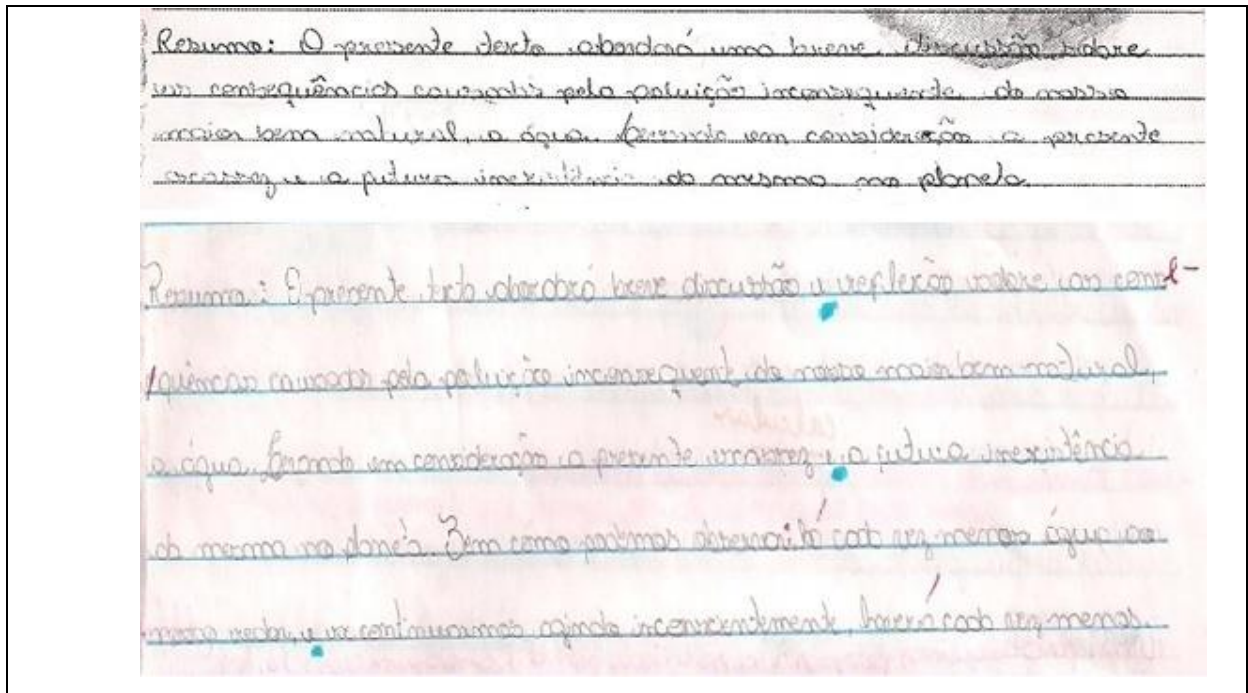 Resumo: O presente texto abordará uma breve discussão sobre
as consequências causadas pela poluição inconsequente do nosso
maior bem natural, a água. Levando em consideração a presente
escassez e a futura inexistência do mesmo no planeta.
Resumo: O presente texto abordará breve discussão e reflexão sobre as conse-
quências causadas pela poluição inconsequente do nosso maior bem natural,
a água. Levando em consideração a presente escassez e a futura inexistência
do mesmo no planeta. Bem como podemos observar há cada vez menos água ao
nosso redor, e se continuarmos agindo inconscientemente, haverá cada vez menos.